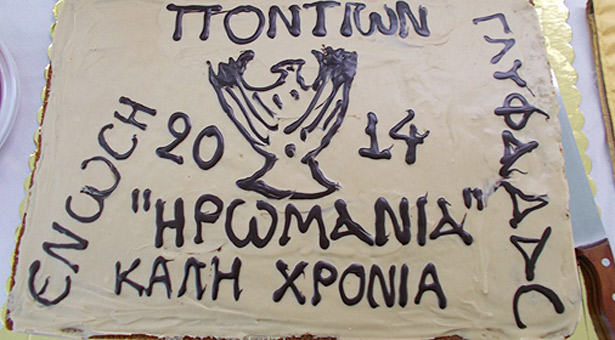 ΕΝΩCΗ
ΠΟΝΤΙΩΝ
ΓΛΥΦΑΔΑC
20 14
"ΗΡΩΜΑΝΙΑ"
ΚΑΛΗ ΧΡΟΝΙΑ